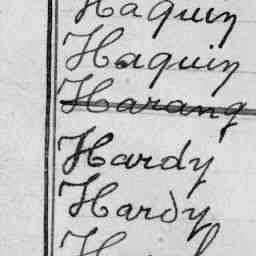 Haquin
Haquin
Harang
Hardy
Hardy